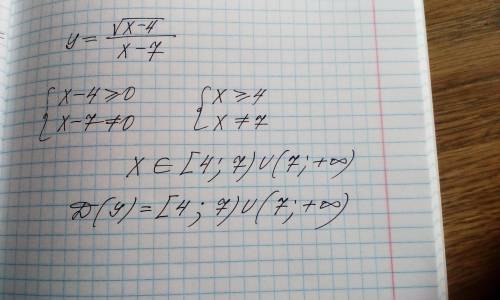 y = √(x-4) / (x-7)
{ x-4 ≥ 0   { x ≥ 4
{ x-7 ≠ 0   { x ≠ 7
x ∈ [4; 7) ∪ (7; +∞)
D(y) = [4; 7) ∪ (7; +∞)